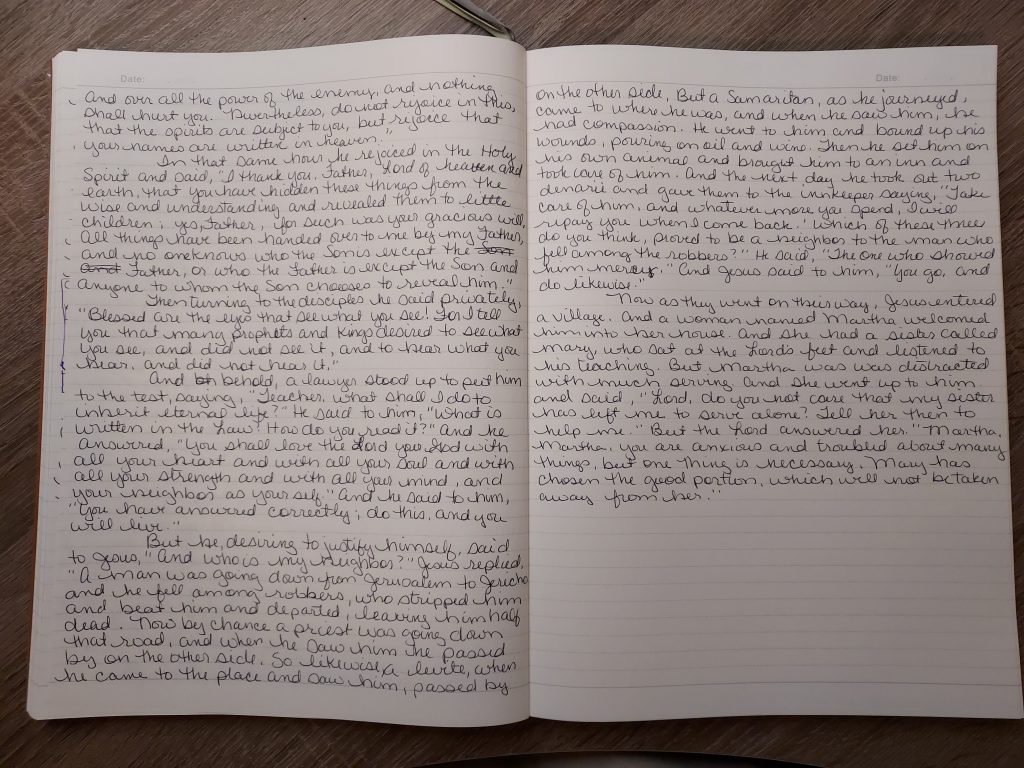 Date:
And over all the power of the enemy, and nothing
shall hurt you. Nevertheless, do not rejoice in this,
that the spirits are subject to you, but rejoice that
your names are written in heaven."
In that same hour he rejoiced in the Holy
Spirit and said, "I thank you, Father, Lord of heaven and
earth, that you have hidden these things from the
wise and understanding and revealed them to little
children; yes, Father, for such was your gracious will.
All things have been handed over to me by my Father,
and no one knows who the Son is except the Son
and Father, or who the Father is except the Son and
anyone to whom the Son chooses to reveal him."
Then turning to the disciples he said privately,
"Blessed are the eyes that see what you see! For I tell
you that many prophets and kings desired to see what
you see, and did not see it, and to hear what you
hear, and did not hear it."
And behold, a lawyer stood up to put him
to the test, saying, "Teacher, what shall I do to
inherit eternal life?" He said to him, "What is
written in the Law? How do you read it?" And he
answered, "You shall love the Lord your God with
all your heart and with all your soul and with
all your strength and with all your mind, and
your neighbor as yourself." And he said to him,
"You have answered correctly; do this, and you
will live."
But he, desiring to justify himself, said
to Jesus, "And who is my neighbor?" Jesus replied,
"A man was going down from Jerusalem to Jericho
and he fell among robbers, who stripped him
and beat him and departed, leaving him half
dead. Now by chance a priest was going down
that road, and when he saw him he passed
by on the other side. So likewise, a Levite, when
he came to the place and saw him, passed by
Date:
on the other side, But a Samaritan, as he journeyed,
came to where he was, and when he saw him, he
had compassion. He went to him and bound up his
wounds, pouring on oil and wine. Then he set him on
his own animal and brought him to an inn and
took care of him. And the next day he took out two
denarii and gave them to the innkeeper saying, "Take
care of him, and whatever more you spend, I will
repay you when I come back.' Which of these three
do you think, proved to be a neighbor to the man who
fell among the robbers?" He said, "The one who showed
him mercy." And Jesus said to him, "You go, and
do likewise."
Now as they went on their way, Jesus entered
a village. And a woman named Martha welcomed
him into her house. And she had a sister called
Mary, who sat at the Lord's feet and listened to
his teaching. But Martha was was distracted
with much serving. And she went up to him
and said, "Lord, do you not care that my sister
has left me to serve alone? Tell her then to
help me." But the Lord answered her. "Martha,
Martha, you are anxious and troubled about many
things, but one thing is necessary. Mary has
chosen the good portion, which will not be taken
away from her."